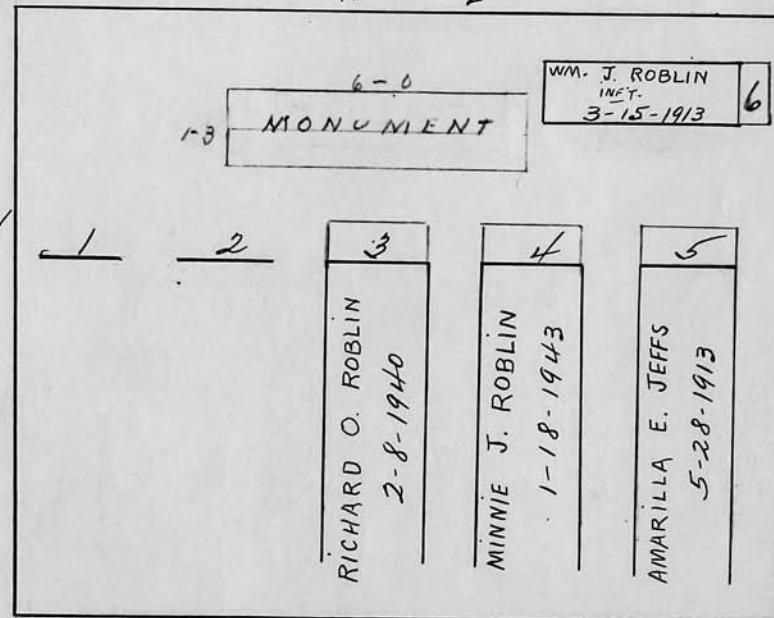 6-0
1-3 MONUMENT
WM. J. ROBLIN
INF'T.
3-15-1913
6
1
2
3
RICHARD O. ROBLIN
2-8-1940
4
MINNIE J. ROBLIN
1-18-1943
5
AMARILLA E. JEFFS
5-28-1913